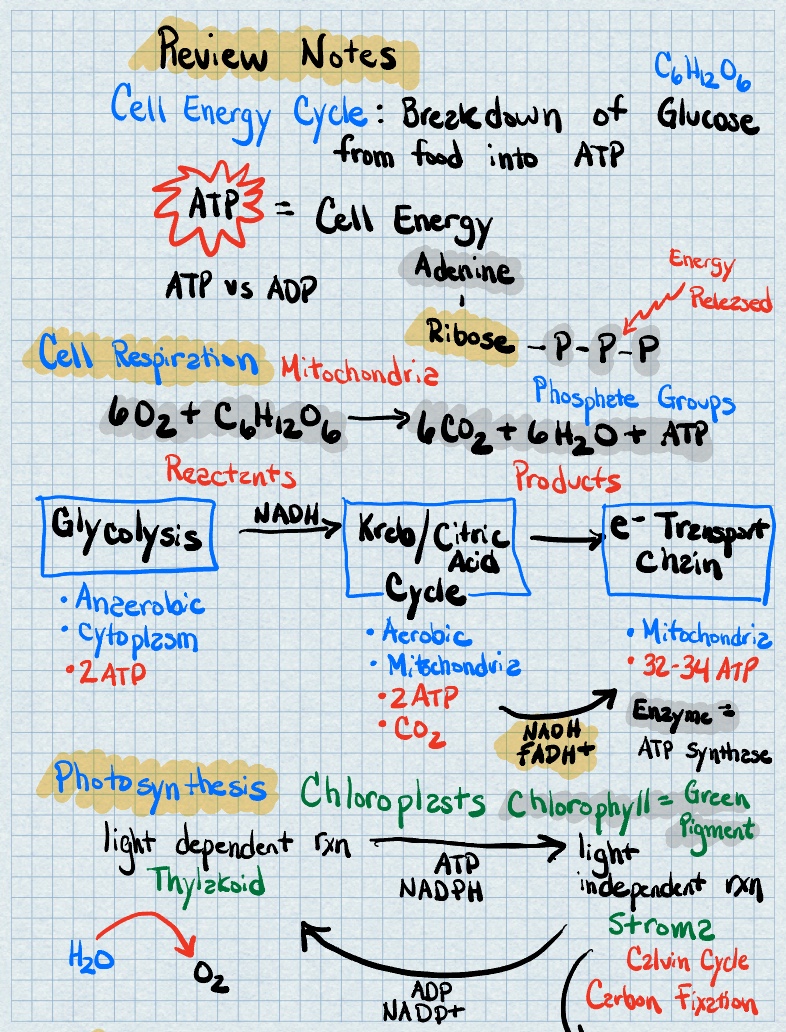 Review Notes
C6H12O6
Cell Energy Cycle: Breakdown of Glucose
from food into ATP
ATP = Cell Energy
ATP vs ADP
Adenine
Ribose - P - P - P
Energy
Released
Phosphate Groups
Cell Respiration Mitochondria
6O2 + C6H12O6 → 6CO2 + 6H2O + ATP
Reactants
Products
Glycolysis
NADH
Kreb/Citric
Acid
Cycle
e- Transport
Chain
• Anaerobic
• Cytoplasm
• 2 ATP
• Aerobic
• Mitochondria
• 2 ATP
• CO2
NADH
FADH+
• Mitochondria
• 32-34 ATP
Enzyme =
ATP Synthase
Photosynthesis Chloroplasts Chlorophyll = Green
Pigment
light dependent rxn
Thylakoid
ATP
NADPH
light
independent rxn
Stroma
Calvin Cycle
Carbon Fixation
H2O
O2
ADP
NADP+